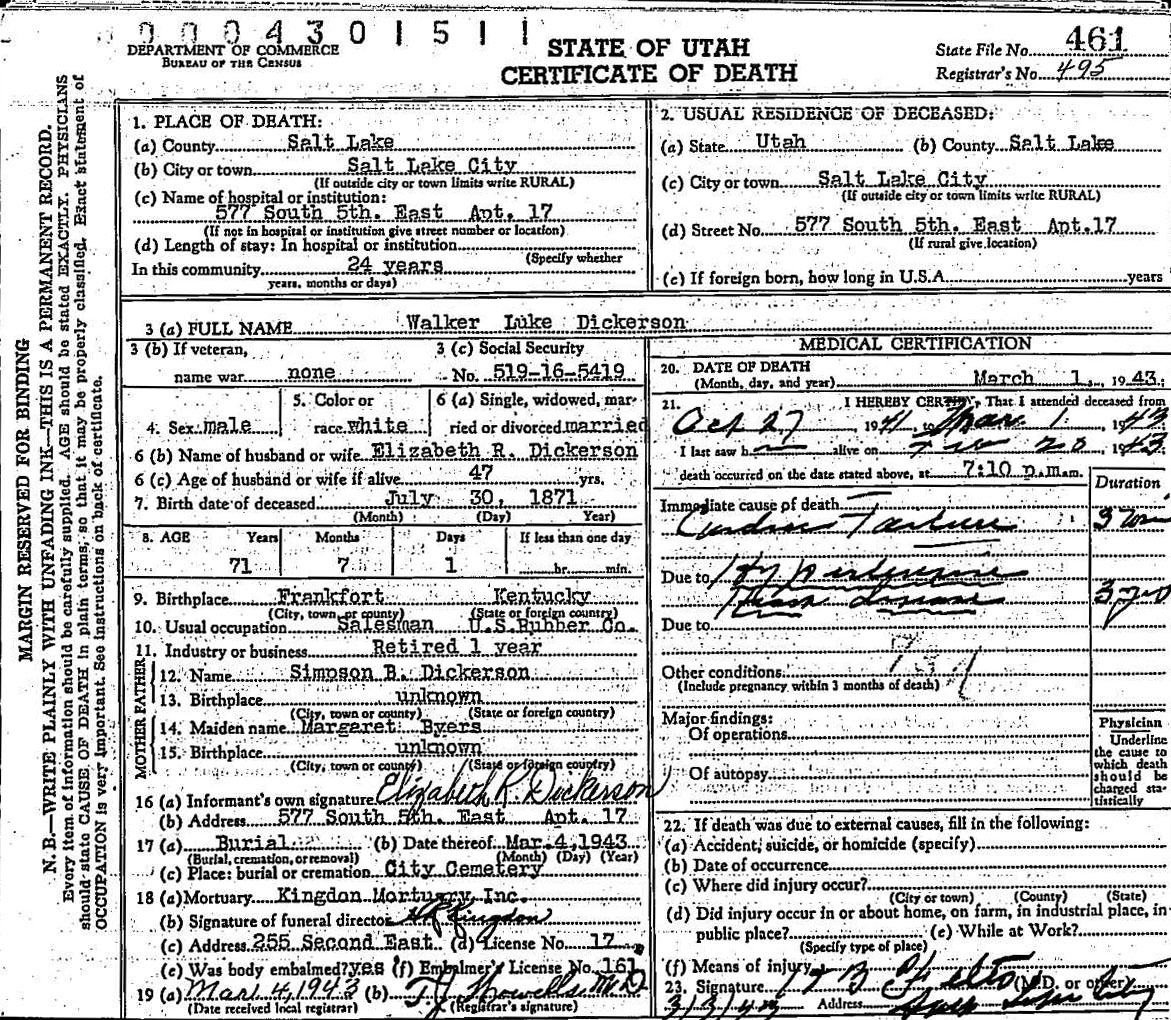 0004301511
DEPARTMENT OF COMMERCE
BUREAU OF THE CENSUS
STATE OF UTAH
CERTIFICATE OF DEATH
State File No. 461
Registrar's No. 495
MARGIN RESERVED FOR BINDING
N. B.—WRITE PLAINLY WITH UNFADING INK—THIS IS A PERMANENT RECORD.
Every item of information should be carefully supplied. AGE should be stated EXACTLY. PHYSICIANS
should state CAUSE OF DEATH in plain terms, so that it may be properly classified. Exact statement of
OCCUPATION is very important. See instructions on back of certificate.
1. PLACE OF DEATH:
(a) County Salt Lake
(b) City or town Salt Lake City
(If outside city or town limits write RURAL)
(c) Name of hospital or institution:
577 South 5th. East Apt. 17
(If not in hospital or institution give street number or location)
(d) Length of stay: In hospital or institution
(Specify whether
In this community 24 years
years, months or days)
2. USUAL RESIDENCE OF DECEASED:
(a) State Utah (b) County Salt Lake
(c) City or town Salt Lake City
(If outside city or town limits write RURAL)
(d) Street No. 577 South 5th. East Apt.17
(If rural give location)
(e) If foreign born, how long in U.S.A. years
3 (a) FULL NAME Walker Luke Dickerson
3 (b) If veteran,
name war none
3 (c) Social Security
No. 519-16-5419
4. Sex male
5. Color or
race white
6 (a) Single, widowed, mar-
ried or divorced married
6 (b) Name of husband or wife Elizabeth R. Dickerson
6 (c) Age of husband or wife if alive 47 yrs.
7. Birth date of deceased July 30, 1871
(Month) (Day) Year)
8. AGE Years Months Days If less than one day
71 7 1 hr. min.
9. Birthplace Frankfort Kentucky
(City, town, or county) (State or foreign country)
10. Usual occupation Salesman U.S.Rubber Co.
11. Industry or business Retired 1 year
FATHER
12. Name Simpson B. Dickerson
13. Birthplace unknown
(City, town or county) (State or foreign country)
MOTHER
14. Maiden name Margaret Byers
15. Birthplace unknown
(City, town or county) (State or foreign country)
16 (a) Informant's own signature Elizabeth R Dickerson
(b) Address 577 South 5th. East Apt. 17
17 (a) Burial (b) Date thereof Mar.4,1943
(Burial, cremation, or removal) (Month) (Day) (Year)
(c) Place: burial or cremation City Cemetery
18 (a) Mortuary Kingdon Mortuary, Inc.
(b) Signature of funeral director Kingdon
(c) Address 255 Second East (d) License No. 17
(e) Was body embalmed? yes (f) Embalmer's License No. 161
19 (a) Mar. 4, 1943 (b) T.J. Howells M.D.
(Date received local registrar) (Registrar's signature)
MEDICAL CERTIFICATION
20. DATE OF DEATH
(Month, day, and year) March 1, 1943.
21. I HEREBY CERTIFY, That I attended deceased from
Oct 27, 1941, to Mar 1 1943
I last saw h alive on Feb 20 1943
death occurred on the date stated above, at 7:10 p.m. am.
Duration
Immediate cause of death
Cardiac Failure 3
Due to Hypertensive
Heart Disease 3 yrs
Due to
Other conditions
(Include pregnancy within 3 months of death)
Major findings:
Of operations
Of autopsy
Physician
Underline
the cause to
which death
should be
charged sta-
tistically
22. If death was due to external causes, fill in the following:
(a) Accident, suicide, or homicide (specify)
(b) Date of occurrence
(c) Where did injury occur?
(City or town) (County) (State)
(d) Did injury occur in or about home, on farm, in industrial place, in
public place? (e) While at Work?
(Specify type of place)
(f) Means of injury
23. Signature (M.D. or other)
3/3/43 Address Salt Lake City